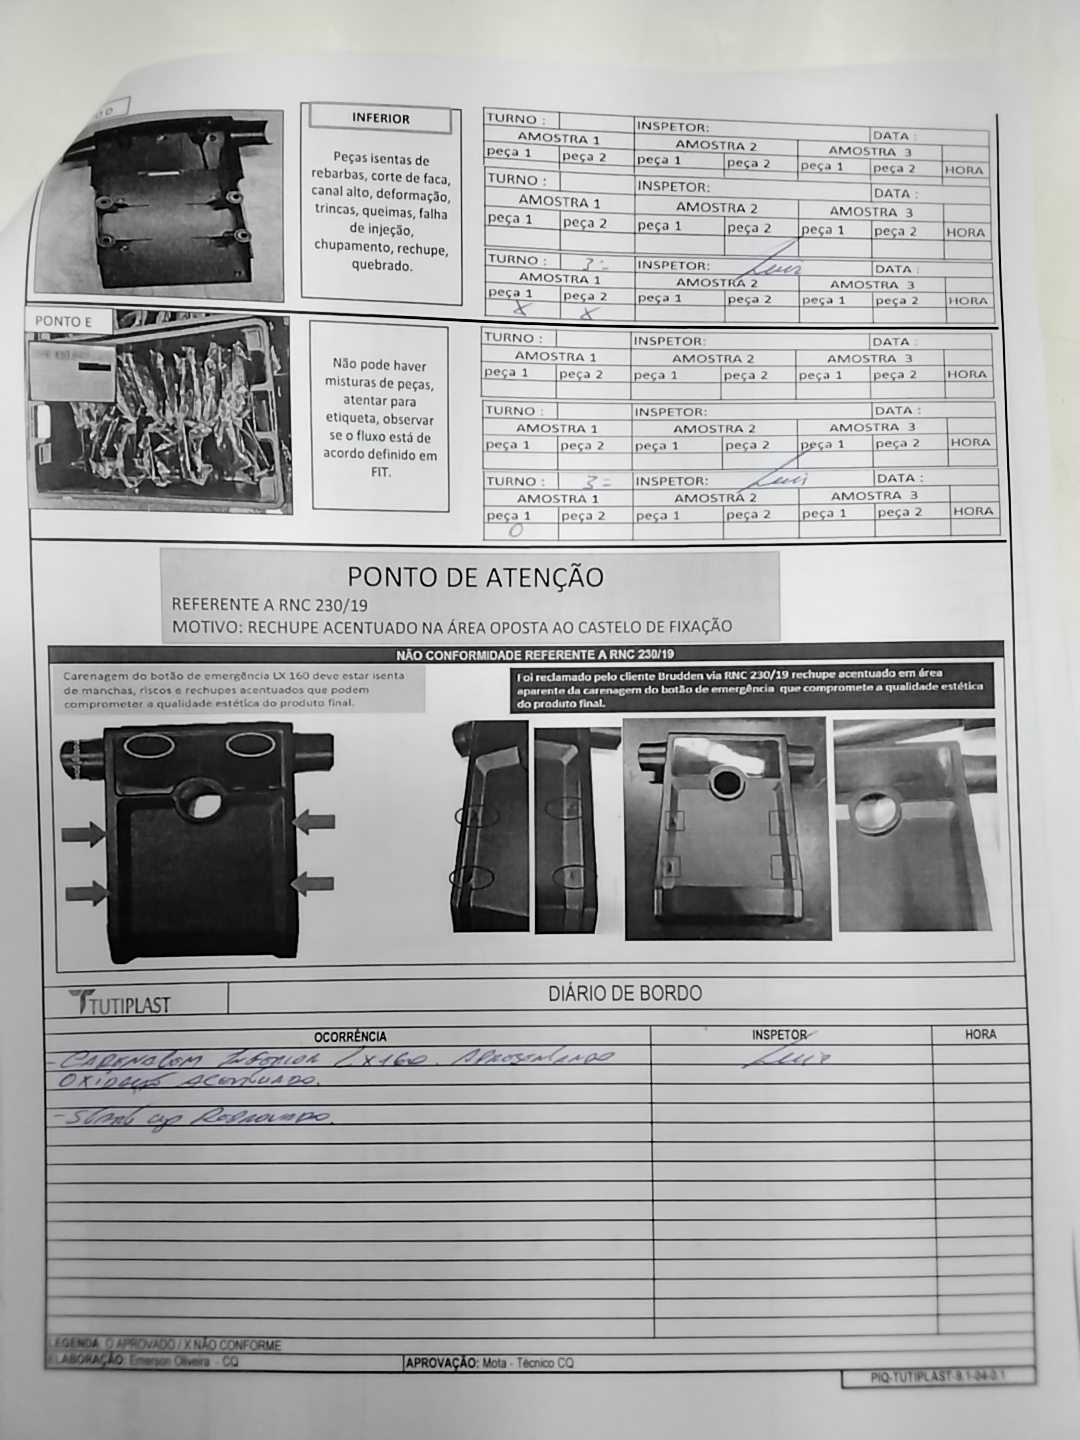 O D
INFERIOR
Peças isentas de
rebarbas, corte de faca,
canal alto, deformação,
trincas, queimas, falha
de injeção,
chupamento, rechupe,
quebrado.
TURNO : INSPETOR: DATA :
AMOSTRA 1 AMOSTRA 2 AMOSTRA 3
peça 1 peça 2 peça 1 peça 2 peça 1 peça 2 HORA
TURNO : INSPETOR: DATA :
AMOSTRA 1 AMOSTRA 2 AMOSTRA 3
peça 1 peça 2 peça 1 peça 2 peça 1 peça 2 HORA
TURNO : 3= INSPETOR: Luis DATA :
AMOSTRA 1 AMOSTRA 2 AMOSTRA 3
peça 1 peça 2 peça 1 peça 2 peça 1 peça 2 HORA
X X
PONTO E
Não pode haver
misturas de peças,
atentar para
etiqueta, observar
se o fluxo está de
acordo definido em
FIT.
TURNO : INSPETOR: DATA :
AMOSTRA 1 AMOSTRA 2 AMOSTRA 3
peça 1 peça 2 peça 1 peça 2 peça 1 peça 2 HORA
TURNO : INSPETOR: DATA :
AMOSTRA 1 AMOSTRA 2 AMOSTRA 3
peça 1 peça 2 peça 1 peça 2 peça 1 peça 2 HORA
TURNO : 3= INSPETOR: Luis DATA :
AMOSTRA 1 AMOSTRA 2 AMOSTRA 3
peça 1 peça 2 peça 1 peça 2 peça 1 peça 2 HORA
O
PONTO DE ATENÇÃO
REFERENTE A RNC 230/19
MOTIVO: RECHUPE ACENTUADO NA ÁREA OPOSTA AO CASTELO DE FIXAÇÃO
NÃO CONFORMIDADE REFERENTE A RNC 230/19
Carenagem do botão de emergência LX 160 deve estar isenta
de manchas, riscos e rechupes acentuados que podem
comprometer a qualidade estética do produto final.
Foi reclamado pelo cliente Brudden via RNC 230/19 rechupe acentuado em área
aparente da carenagem do botão de emergência que compromete a qualidade estética
do produto final.
TUTIPLAST
DIÁRIO DE BORDO
OCORRÊNCIA INSPETOR HORA
- CARENAGEM INFERIOR LX160. APRESENTANDO Luis
ACENTUADO.
- START UP REPROVADO.
LEGENDA O APROVADO / X NÃO CONFORME
ELABORAÇÃO: Emerson Oliveira - CQ
APROVAÇÃO: Mota - Técnico CQ
PIQ-TUTIPLAST-9.1-04-0.1